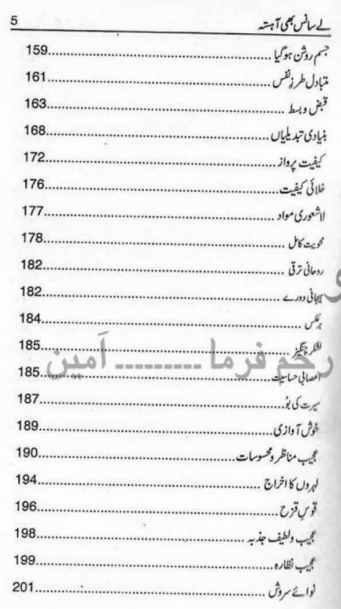 لے سانس بھی آہستہ 5
جسم روشن ہوگیا ........ 159
متبادل طرز تنفس ........ 161
قبض و بسط ........ 163
بنیادی تبدیلیاں ........ 168
کیفیت پرواز ........ 172
خلائی کیفیت ........ 176
لاشعوری مواد ........ 177
محویت کامل ........ 178
روحانی ترقی ........ 182
ہیجانی دورے ........ 182
برعکس ........ 184
........ 185
رحم فرما ــــــــ آمین
اعصابی حساسیت ........ 185
سیرت کی بو ........ 187
خوش آوازی ........ 189
عجیب مناظر و محسوسات ........ 190
لہروں کا اخراج ........ 194
قوس قزح ........ 196
عجیب و لطیف جذبہ ........ 198
عجیب نظارہ ........ 199
نوائے سروش ........ 201